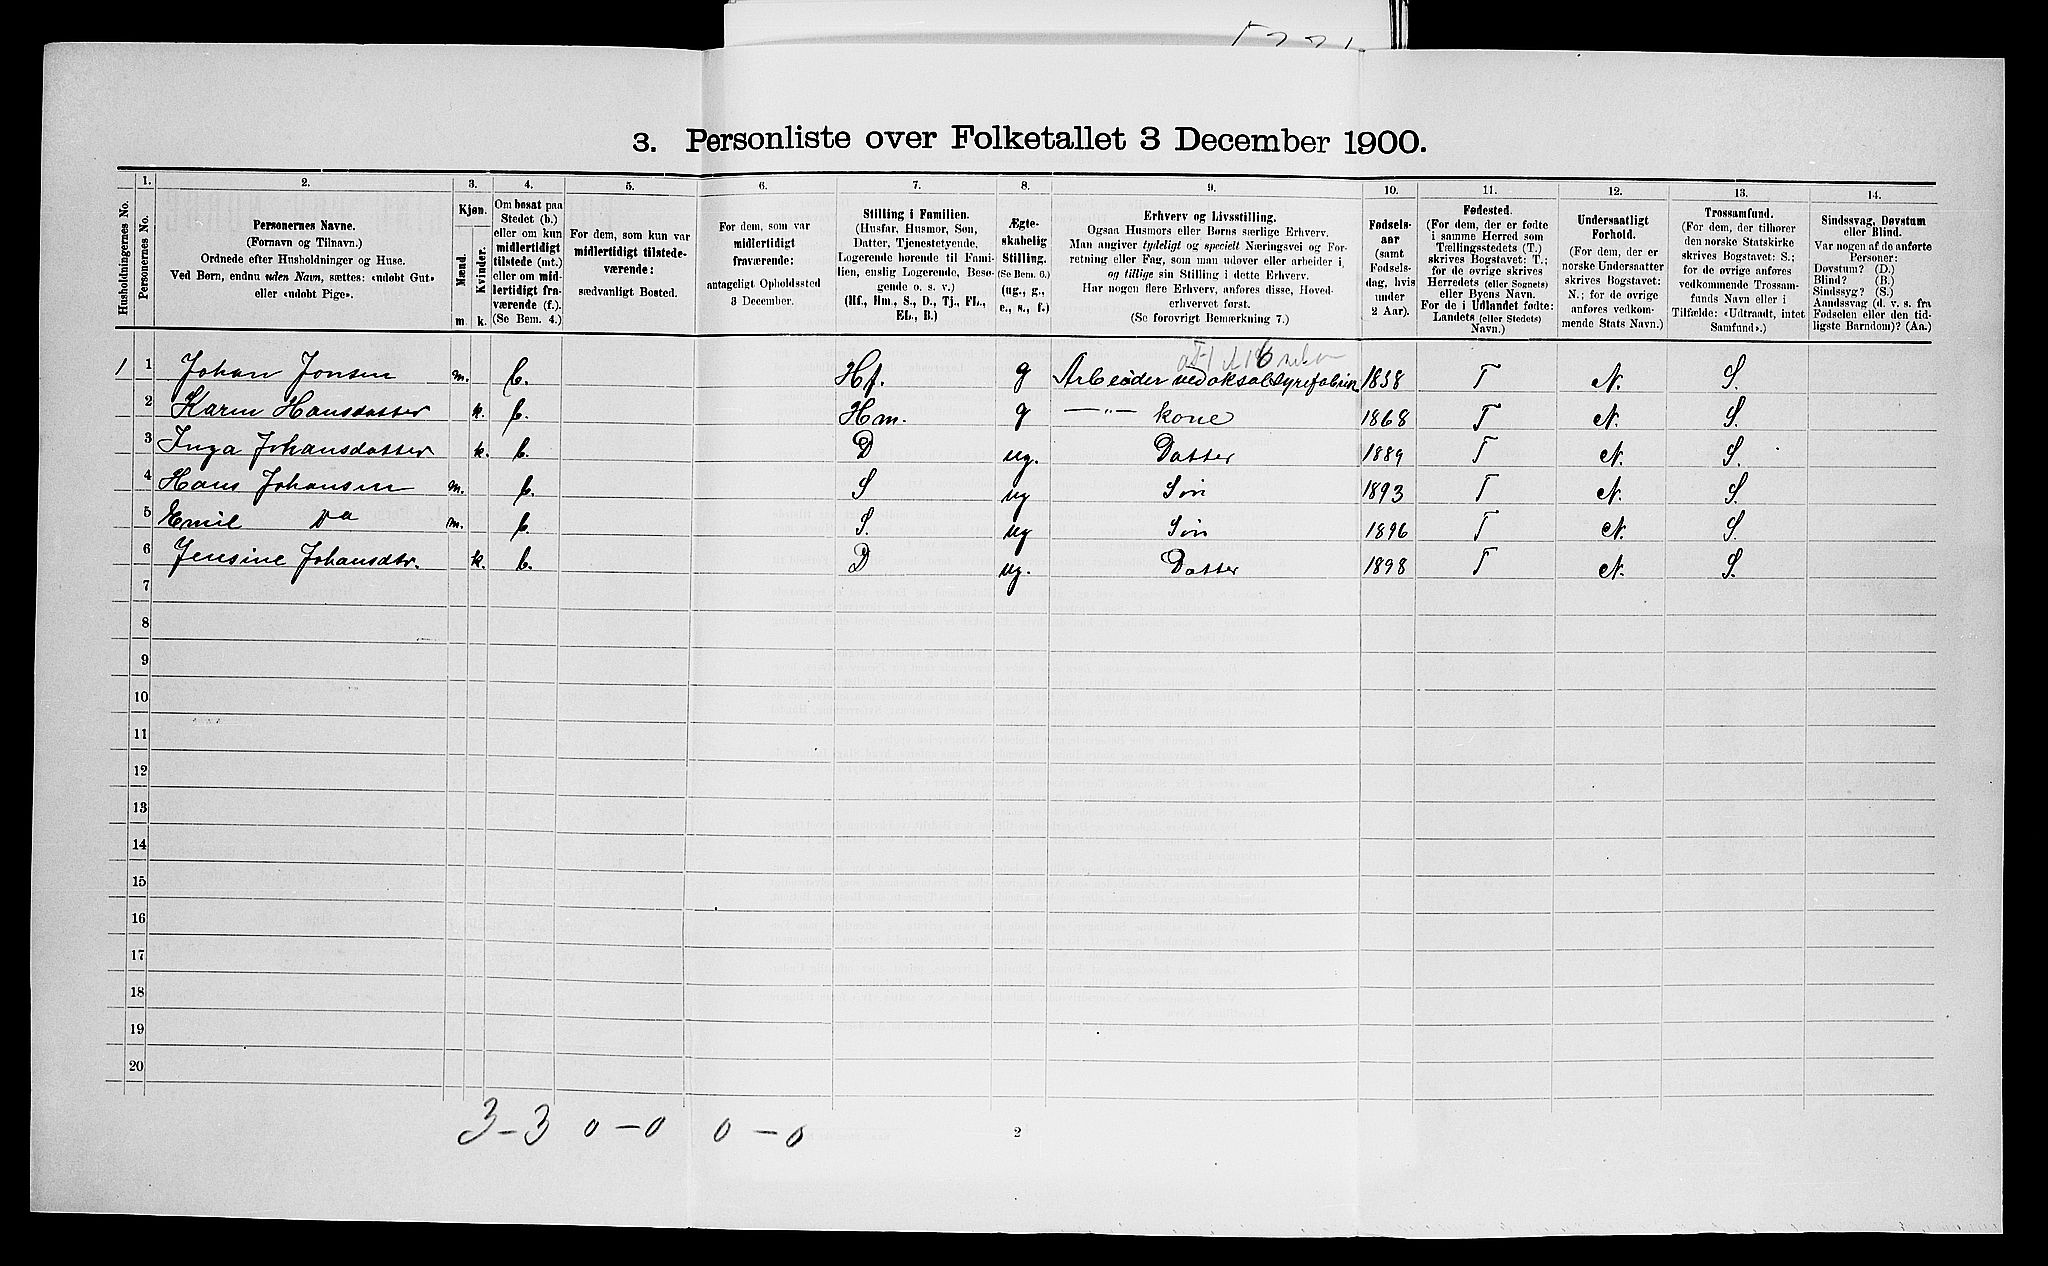 3. Personliste over Folketallet 3 December 1900.
1. 2. 3. 4. 5. 6. 7. 8. 9. 10. 11. 12. 13. 14.
Husholdningernes No.
Personernes No.
Personernes Navne.
(Fornavn og Tilnavn.)
Ordnede efter Husholdninger og Huse.
Ved Børn, endnu uden Navn, sættes: «udøbt Gut»
eller «udøbt Pige».
Kjøn.
Mænd.
Kvinder.
m. k.
Om bosat paa
Stedet (b.)
eller om kun
midlertidigt
tilstede (mt.)
eller om mid-
lertidigt fra-
værende (f.).
(Se Bem. 4.)
For dem, som kun var
midlertidigt tilstede-
værende:
sædvanligt Bosted.
For dem, som var
midlertidigt
fraværende:
antageligt Opholdssted
3 December.
Stilling i Familien.
(Husfar, Husmor, Søn,
Datter, Tjenestetyende,
Logerende hørende til Fami-
lien, enslig Logerende, Besø-
gende o. s. v.)
(Hf., Hm., S., D., Tj., FL.,
EL., B.)
Ægte-
skabelig
Stilling.
(Se Bem. 6.)
(ug., g.,
e., s., f.)
Erhverv og Livsstilling.
Ogsaa Husmors eller Børns særlige Erhverv.
Man angiver tydeligt og specielt Næringsvei og For-
retning eller Fag, som man udøver eller arbeider i,
og tillige sin Stilling i dette Erhverv.
Har nogen flere Erhverv, anføres disse, Hoved-
erhvervet først.
(Se forøvrigt Bemærkning 7.)
Fødsels-
aar
(samt
Fødsels-
dag, hvis
under
2 Aar).
Fødested.
(For dem, der er fødte
i samme Herred som
Tællingsstedets (T.)
skrives Bogstavet: T.;
for de øvrige skrives
Herredets (eller Sognets)
eller Byens Navn.
For de i Udlandet fødte:
Landets (eller Stedets)
Navn.)
Undersaatligt
Forhold.
(For dem, der er
norske Undersaatter
skrives Bogstavet:
N.; for de øvrige
anføres vedkom-
mende Stats Navn.)
Trossamfund.
(For dem, der tilhører
den norske Statskirke
skrives Bogstavet: S.;
for de øvrige anføres
vedkommende Trossam-
funds Navn eller i
Tilfælde: «Udtraadt, intet
Samfund».)
Sindssvag, Døvstum
eller Blind.
Var nogen af de anførte
Personer:
Døvstum? (D.)
Blind? (B.)
Sindssyg? (S.)
Aandssvag (d. v. s. fra
Fødselen eller den tid-
ligste Barndom)? (Aa.)
1 1 Johan Jonsen m. b. Hf. g Arbeider ved oksalsyrefabrik 1858 T N. S.
2 Karin Hansdatter k. b. Hm. g —"— kone 1868 T N. S.
3 Inga Johansdatter k. b. D ug. Datter 1889 T N. S.
4 Hans Johansen m. b. S ug Søn 1893 T N. S.
5 Emil Do m. b. S. ug Søn 1896 T N. S.
6 Jensine Johansdtr. k. b. D ug. Datter 1898 T N. S.
7
8
9
10
11
12
13
14
15
16
17
18
19
20
3-3 0-0 0-0
2